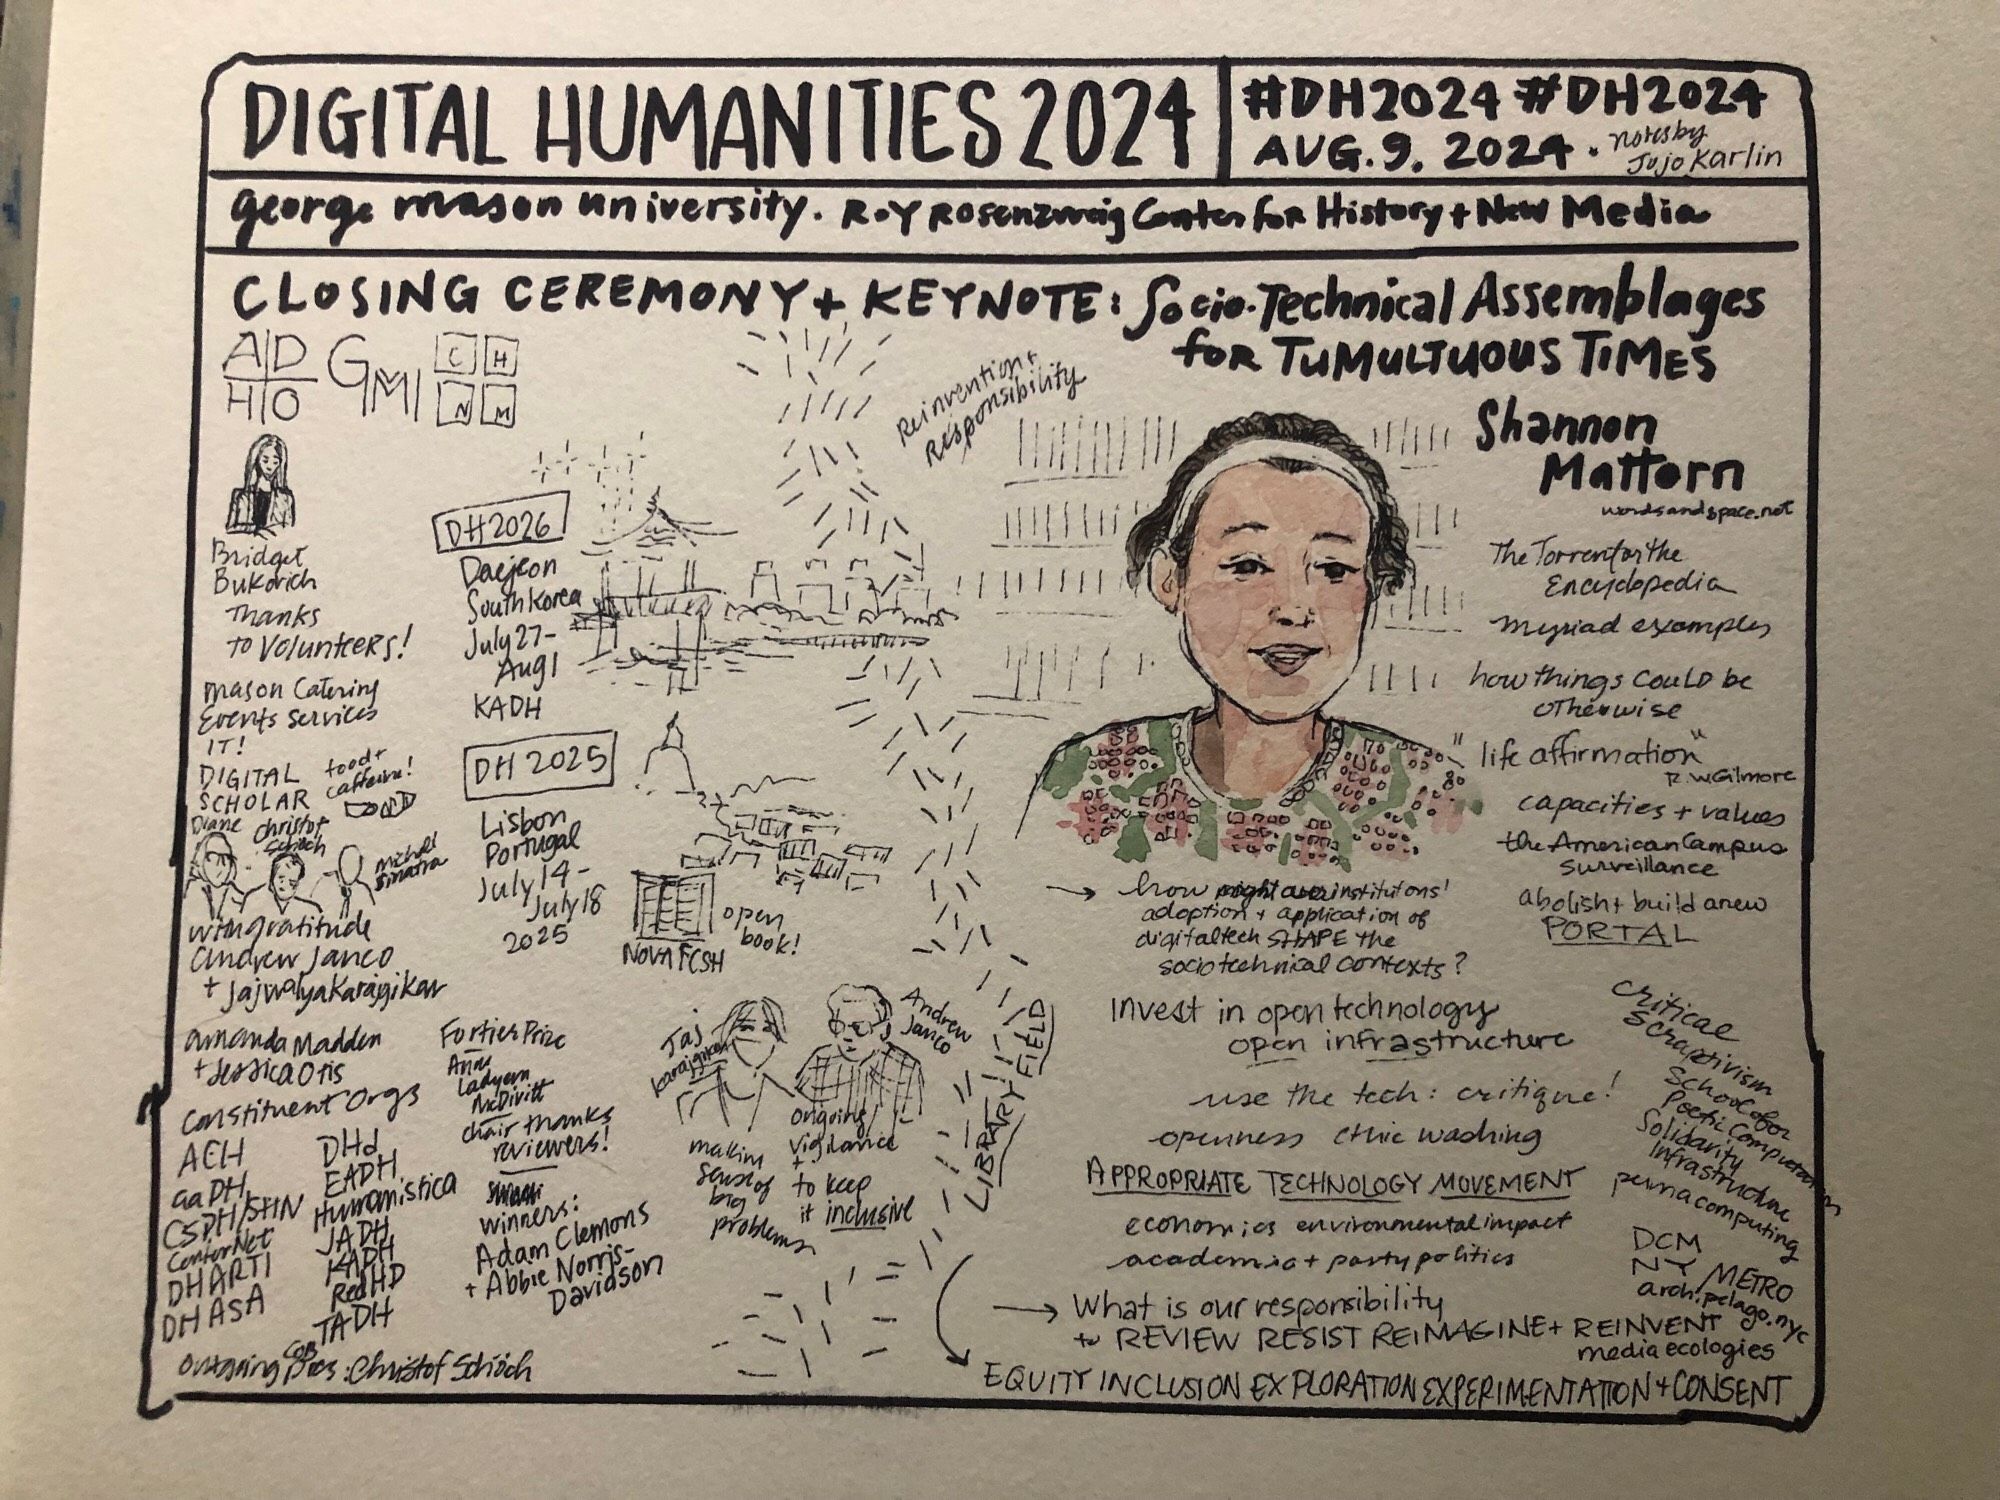 DIGITAL HUMANITIES 2024
#DH2024 #DH2024
AUG. 9. 2024 · notes by
Jojo Karlin
george mason university. Roy Rosenzweig Center for History + New Media
CLOSING CEREMONY + KEYNOTE: Socio-Technical Assemblages
for TUMULTUOUS TIMES
AD
HO
GMU
C H
N M
Reinvention +
Responsibility
Bridget
Bukovich
Thanks
to Volunteers!
mason Catering
Events Services
IT!
DIGITAL
SCHOLAR
food +
caffeine!
Diane
Christof
Schöch
Michael
Sinatra
with gratitude
Andrew Janco
+ Jajwalya Karajgikar
amanda Madden
+ Jessica Otis
Constituent Orgs
ACH
aaDH
CSDH/SHN
CenterNet
DHARTI
DHASA
DHd
EADH
Humanistica
JADH
KADH
RedHD
TADH
Outgoing COB pres: Christof Schöch
DH2026
Daejeon
South Korea
July 27-
Aug 1
KADH
DH 2025
Lisbon
Portugal
July 14-
July 18
2025
NOVA FCSH
open
book!
Fortier Prize
Anne
Ladyem
McDivitt
chair thanks
reviewers!
winners:
Adam Clemons
+ Abbie Norris-
Davidson
Jaj
Karajgikar
Andrew
Janco
making
sense of
big
problems
ongoing
vigilance
+
to keep
it inclusive
LIBRARY FIELD
Shannon
Mattern
wordsinspace.net
The Torrent for the
Encyclopedia
myriad examples
how things could be
otherwise
"life affirmation"
R.W Gilmore
capacities + values
the American Campus
surveillance
abolish + build anew
PORTAL
→ how might our institutions'
adoption + application of
digital tech SHAPE the
sociotechnical contexts?
Invest in open technology
open infrastructure
use the tech: critique!
openness ethic washing
APPROPRIATE TECHNOLOGY MOVEMENT
economics environmental impact
academia + party politics
Critical
Scraptivism
School for
Poetic Computation
Solidarity
Infrastructure
permacomputing
DCM
NY METRO
archipelago.nyc
→ What is our responsibility
to REVIEW RESIST REIMAGINE + REINVENT
media ecologies
EQUITY INCLUSION EXPLORATION EXPERIMENTATION + CONSENT